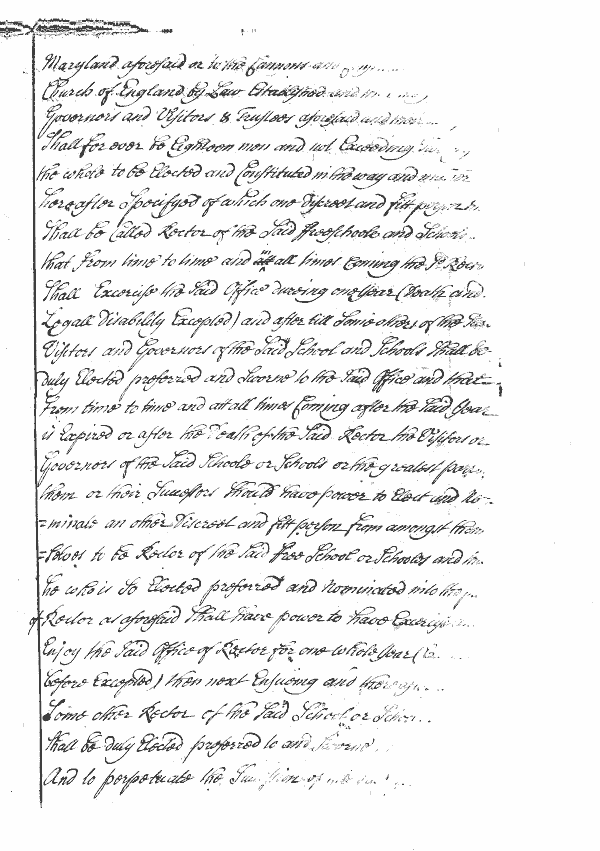 Maryland aforesaid or to the Cannons and
Church of England by Law Established and
Governors and Visitors & Trustees aforesaid and
Shall for ever be Eighteen men and not Exceeding
the whole to be Elected and Constituted in the way and
hereafter Specifyed of which one discreet and fitt person
Shall be Called Rector of the Said ffreeschoole and
that From time to time and att all times Coming the Sd Rector
Shall Excercise the Said Office dureing one Year (Death and
Legall Disability Excepted) and after till Some other of the Said
Visitors and Governors of the Said School and Schools Shall be
duly Elected preferred and Sworne to the Said Office and that
From time to time and att all times Coming after the Said Year
is Expired or after the Death of the Said Rector the Visitors or
Governors of the Said Schoole or Schools or the greatest part
them or their Successors Should have power to Elect and No
=minate an other Discreet and fitt person From amongst them
=selves to be Rector of the Said Free School or Schooles and
he who is So Elected preferred and Nominated into the
of Rector as aforesaid Shall have power to have Excercise
Enjoy the Said Office of Rector for one whole Year
before Excepted) then next Ensueing and
Some other Rector of the Said School or
Shall be duly Elected preferred to and Sworne
And to perpetuate the Succession of